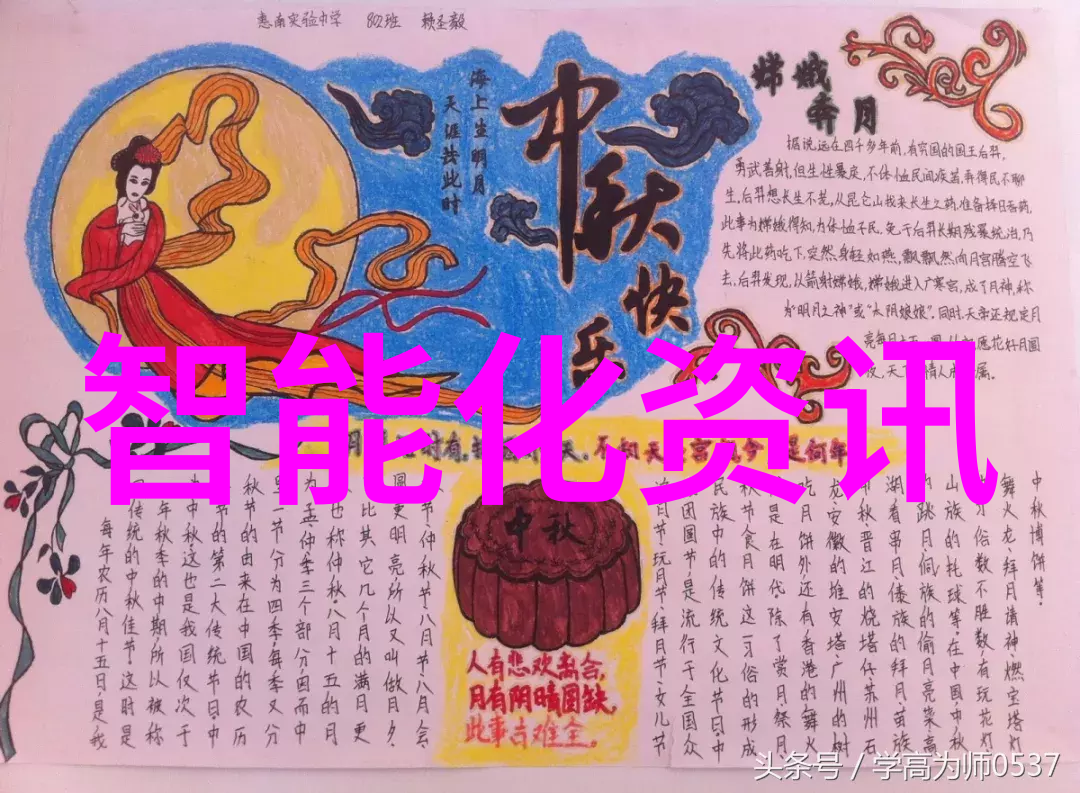 惠南实验中学 802班 赖圣毅
海上生明月
天涯共此时
中秋快乐
嫦娥
奔月
据说,远在四千多年前,有穷国的国王后羿,
勇武善射,但生性暴戾,不体恤民间疾苦,弄得民不聊
生。后羿想长生不老,从昆仑山找来长生之药,准备择日吞药,
此事为嫦娥得知,为体恤平民,免于后羿长期残暴统治,乃
先将此药吃下,突然身轻如燕,飘飘然向月宫腾空飞
去,后羿发现,以箭射嫦娥,嫦娥进入广寒宫,成了月神,称
为“明月之神”或“太阴娘娘”。同时,天帝还规定月
亮每月十五
花好月圆
夜,天
属。
智能化资讯
不知天
宫
今
是何年
中秋
人有悲欢离合,
月有阴晴圆缺,
此事古难全。
中秋博饼等。
舞火龙、拜月请神、燃宝塔灯
习俗数不胜数,有玩花灯、
山族的托球等,在中国,中秋
的跳月、侗族的偷月亮菜、高
湖看串月、傣族的拜月、苗族
中秋、晋江的烧塔仔、苏州石
龙、安徽的堆宝塔、广州的树
吃月饼外,还有香港的舞火
是在明代,除了赏月、祭月、
秋节食月饼这一习俗的形成
民族中的传统文化节日,中
团圆节,是流行于全国众
追月节、玩月节、拜月节、女儿节
节、仲秋节、八月节、八月会、
圆,更明亮,所以又叫做月夕,
比其它几个月的满月更
也称仲秋,八月十五的月
为孟、仲、季三个部分,因而中
里一节分为四季,每季又分
秋节的由来,在中国的农历
节的第二大传统节日。中
中秋,这也是我国仅次于
年秋季的中期,所以被称
传统的中秋佳节。这时是
每年农历八月十五日,是我
头条号 / 学高为师0537